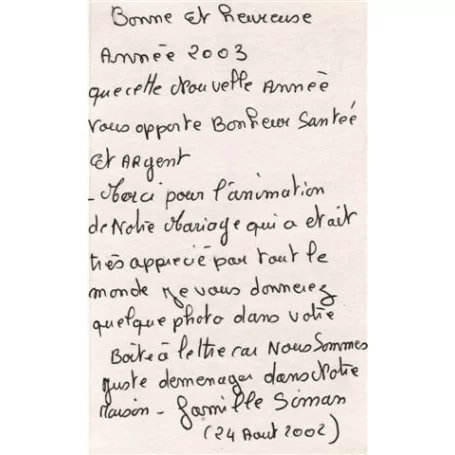 Bonne et heureuse
Année 2003
que cette Nouvelle Année
vous apporte Bonheur Santée
et Argent
- Merci pour l'animation
de Notre Mariage qui a etait
très apprecié par tout le
monde je vous donnerez
quelque photo dans votre
Boite à lettre car Nous Sommes
juste demenager dans Notre
Maison - famille Siman
(24 Aout 2002)